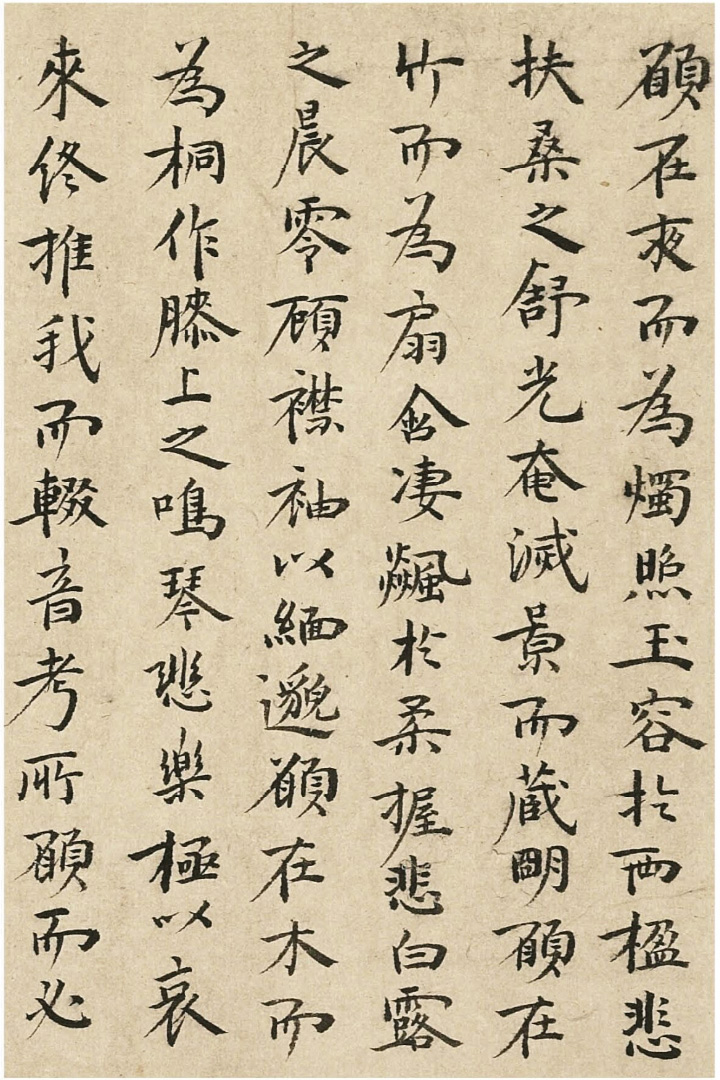 願在夜而為燭照玉容於兩楹悲
扶桑之舒光奄滅景而藏明願在
竹而為扇含淒飆於柔握悲白露
之晨零顧襟袖以緬邈願在木而
為桐作膝上之鳴琴悲樂極以哀
來終推我而輟音考所願而必